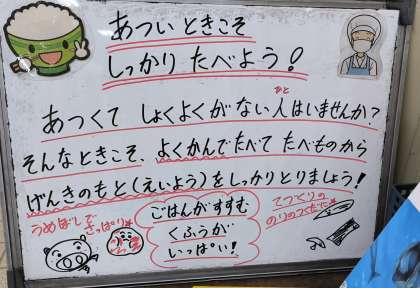 あついときこそ
しっかり たべよう!
あつくて しょくよくがない人はいませんか?
ひと
そんなときこそ、よくかんでたべて たべものから
げんきのもと(えいよう)をしっかりとりましょう!
うめぼしで
さっぱり
ごはんがすすむ
くふうが
いっぱい!
てづくりの
のりのつくだに